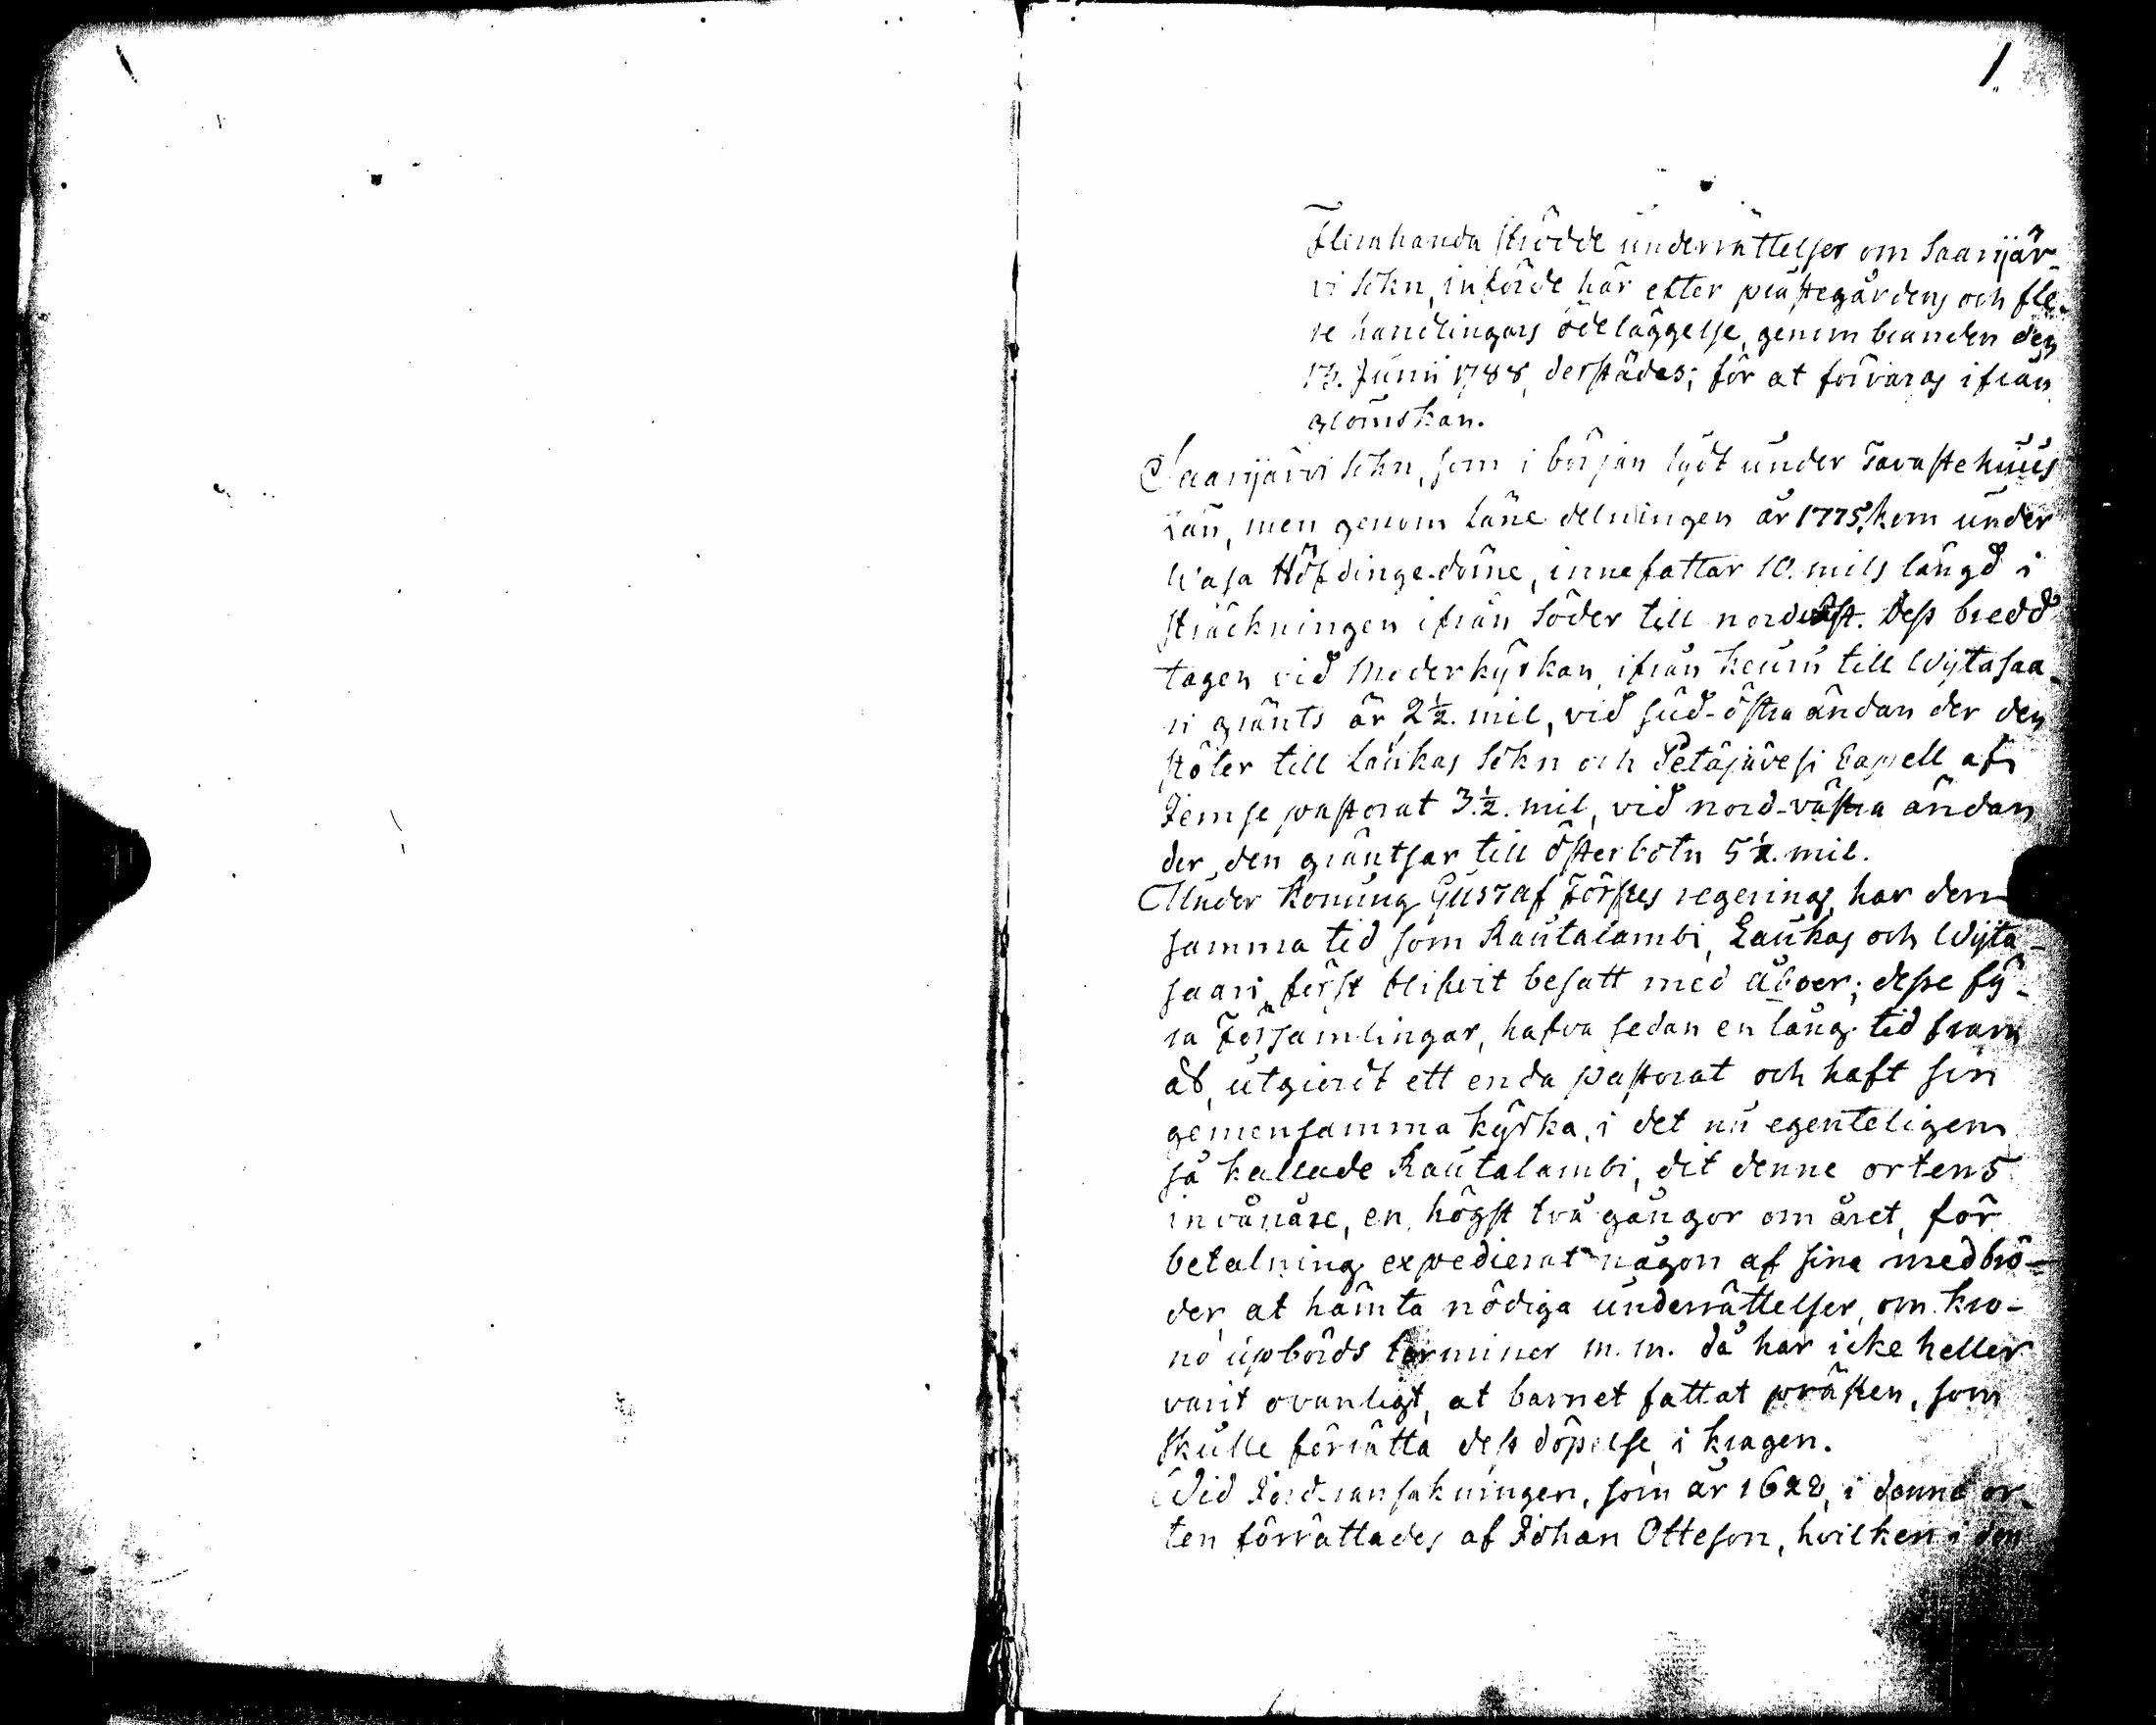 1.
Flerahanda strödde underrättelser om Saarijär-
vi Sokn, införde här efter prästegårdens och fle-
re handlingars ödeläggelse, genom branden den
13. Junii 1788, derstädes; för at förvaras ifrån
glömskan.
Saarijärvi Sokn, som i början lydt under Tavastehuus
Län, men genom Läne delningen år 1775, kom under
Wasa Höfdinge-döme, innefattar 10. mils längd i
sträckningen ifrån Söder till nordväst. Dess bredd
tagen vid Moderkyrkan, ifrån Keuru till Wijtasaa-
ri gränts är 2 1/2. mil, vid sud-östra ändan der den
stöter till Laukas Sokn och Petäjävesi Capell af
Jemse pastorat 3. 1/2. mil, vid nord-västra ändan
der, den gräntsar till Österbotn 5 1/2. mil.
Under Konung Gustaf Förstes regering, har den
samma tid som Rautalambi, Laukas och Wijta-
saari, först blifvit besatt med åboer; desse fy-
ra Församlingar, hafva sedan en lång tid fram
åt, utgiordt ett enda pastorat och haft sin
gemensamma kyrka, i det nu egenteligen
så kallade Rautalambi, dit denne ortens
invånare, en, högst två gångor om året, för
betalning expedierat någon af sina medbrö-
der, at hämta nödiga underrättelser, om kro-
no upbörds terminer m. m. då har icke heller
varit ovanligt, at barnet fattat prästen, som
skulle förrätta dess döpelse, i kragen.
Wid Jord-ransakningen, som år 1628, i denne or-
ten förrättades af Johan Otteson, hvilken i den